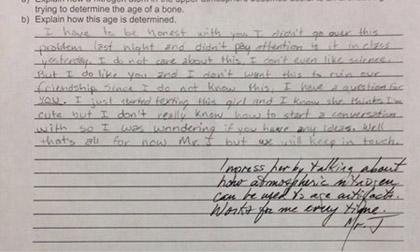 a) Explain how a nitrogen atom in the upper atmosphere becomes useful to an
trying to determine the age of a bone.
b) Explain how this age is determined.
I have to be honest with you I didn't go over this
problem last night and didn't pay attention to it in class
yesterday. I do not care about this, I don't even like science.
But I do like you and I don't want this to ruin our
friendship. Since I do not know this, I have a question for
you. I just started texting this girl and I know she thinks I'm
cute but I don't really know how to start a conversation
with so I was wondering if you have any ideas. Well
that's all for now Mr. J but we will keep in touch.
Impress her by talking about
how atmospheric nitrogen
can be used to age artifacts.
Works for me every time.
Mr. J